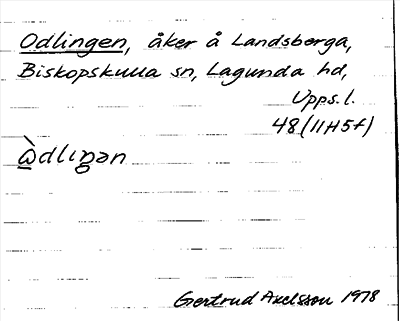 Odlingen, åker å Landsberga,
Biskopskulla sn, Lagunda hd,
Upps. l.
48 (11H5f)
ὰ̱dlıŋən
Gertrud Axelsson 1978